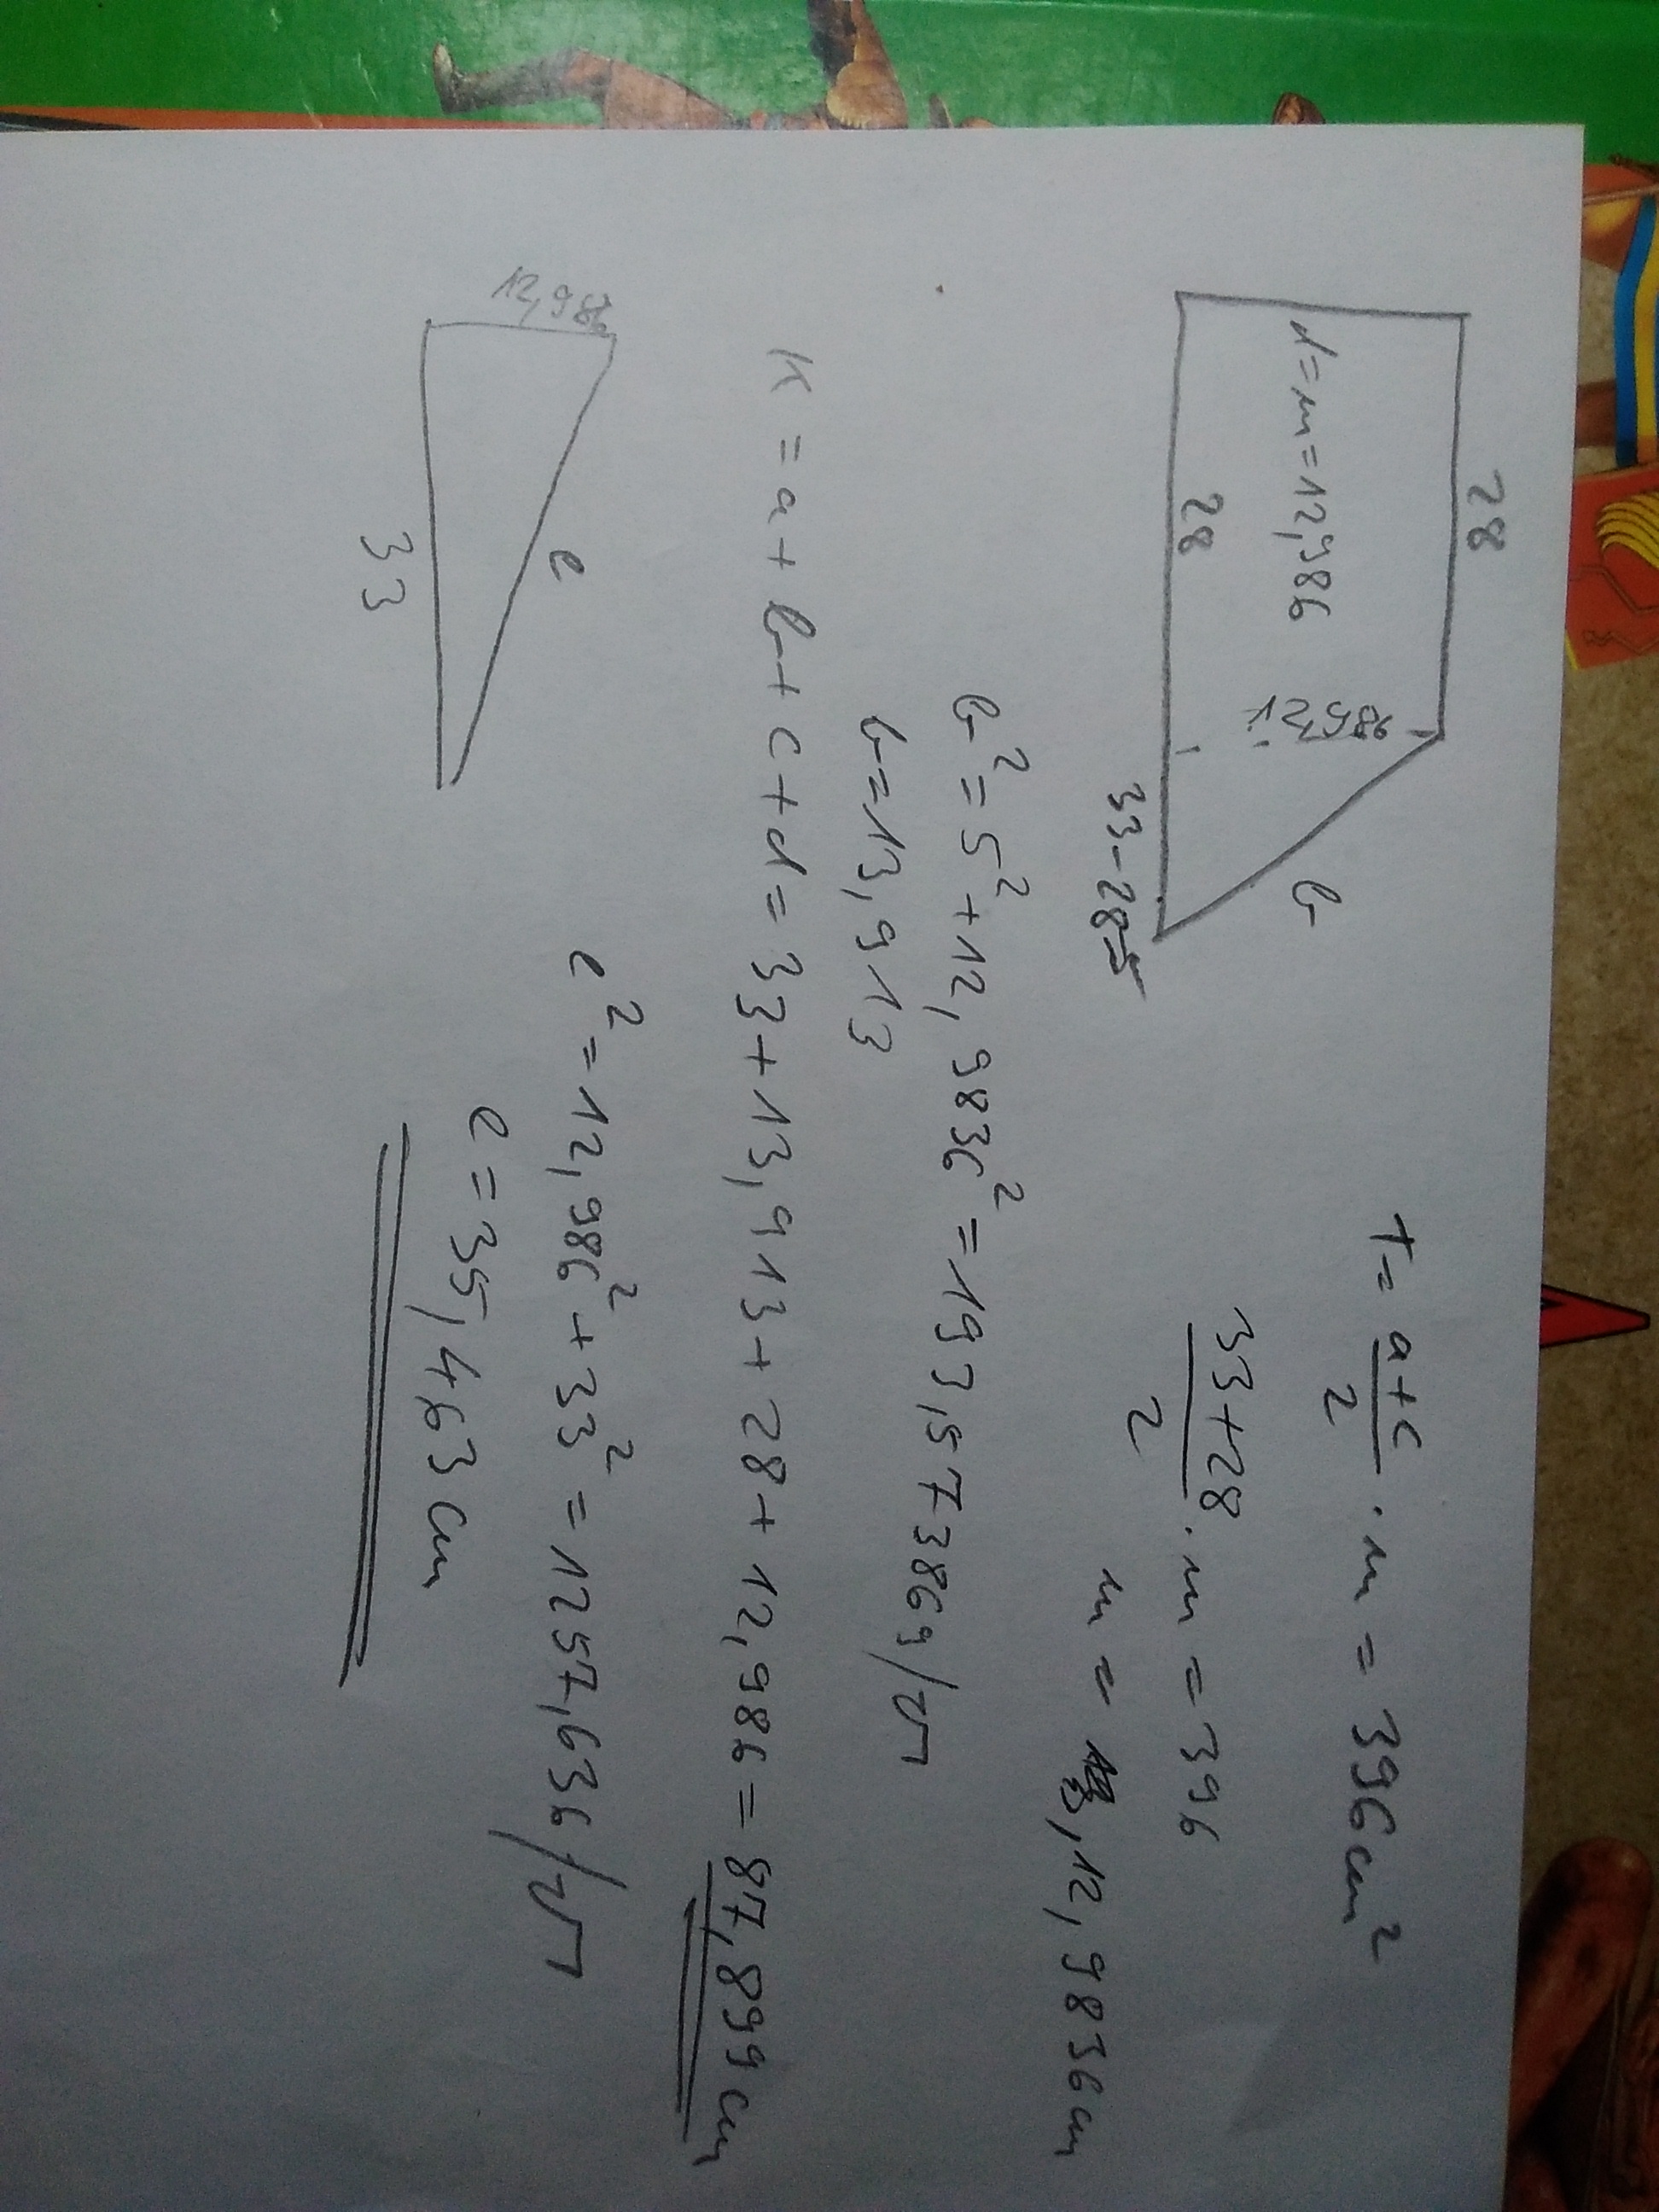 28
d=m=12,986
28
b
33-28=5
T= a+c/2 · m = 396 cm²
33+28/2 · m = 396
m = 12,9836 cm
b² = 5² + 12,9836² = 193,573869 /√
b=13,913
K = a + b + c + d = 33 + 13,913 + 28 + 12,986 = 87,899 cm
12,986
e
33
e² = 12,986² + 33² = 1257,636 /√
e = 35,463 cm